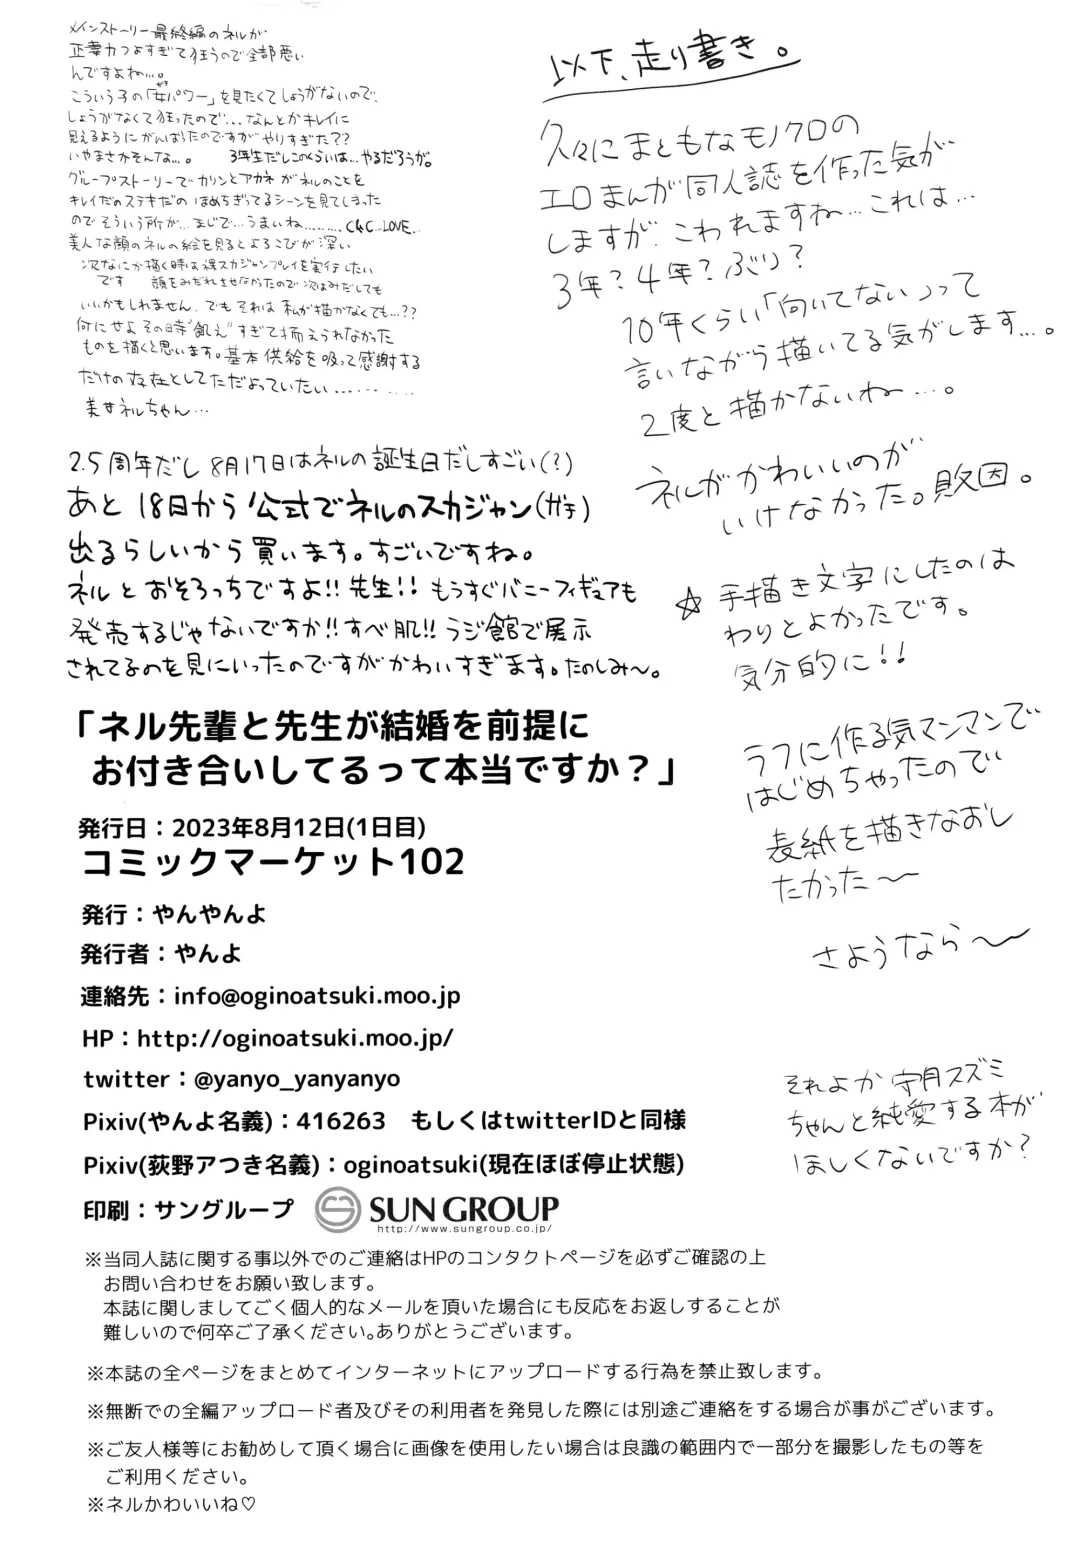 メインストーリー最終編のネルが
正妻力つよすぎて狂うので全部悪い
んですよね…。
こういう子の「女パワー」を見たくてしょうがないので、
しょうがなくて狂ったので…なんとかキレイに
見えるようにがんばったのですがやりすぎた??
いやまさかそんな…。 3年生だしこのくらいは…やるだろうが。
グループストーリーでカリンとアカネがネルのことを
キレイだのステキだのほめちぎってるシーンを見てしまった
のでそういう所が…まじで…うまいね……… C&C…LOVE…
美人な顔のネルの絵を見るとよろこびが深い
次なにか描く時は裸スカジャンプレイを実行したい
です 顔をみだれさせなかったので次はみだしても
いいかもしれません。でもそれは私が描かなくても…??
何にせよその時"飢え"すぎて捕えられなかった
ものを描くと思います。基本供給を吸って感謝する
だけの存在としてただよっていたい………
美女ネルちゃん…
2.5周年だし8月17日はネルの誕生日だしすごい(?)
あと18日から公式でネルのスカジャン(ガチ)
出るらしいから買います。すごいですね。
ネルとおそろっちですよ!!先生!!もうすぐバニーフィギュアも
発売するじゃないですか!!すべ肌!!ラジ館で展示
されてるのを見にいったのですがかわいすぎます。たのしみ〜。
以下、走り書き。
久々にまともなモノクロの
エロまんが同人誌を作った気が
しますが、こわれますね…これは…
3年?4年?ぶり?
10年くらい「向いてない」って
言いながら描いてる気がします…。
2度と描かないね…。
ネルがかわいいのが
いけなかった。敗因。
☆手描き文字にしたのは
わりとよかったです。
気分的に!!
ラフに作る気マンマンで
はじめちゃったので
表紙を描きなおし
たかった〜
さようなら〜
それよか守月スズミ
ちゃんと純愛する本が
ほしくないですか?
「ネル先輩と先生が結婚を前提に
お付き合いしてるって本当ですか？」
発行日：2023年8月12日(1日目)
コミックマーケット102
発行：やんやんよ
発行者：やんよ
連絡先：info@oginoatsuki.moo.jp
HP：http://oginoatsuki.moo.jp/
twitter：@yanyo_yanyanyo
Pixiv(やんよ名義)：416263　もしくはtwitterIDと同様
Pixiv(荻野アつき名義)：oginoatsuki(現在ほぼ停止状態)
印刷：サングループ SUN GROUP
http://www.sungroup.co.jp/
※当同人誌に関する事以外でのご連絡はHPのコンタクトページを必ずご確認の上
お問い合わせをお願い致します。
本誌に関しましてごく個人的なメールを頂いた場合にも反応をお返しすることが
難しいので何卒ご了承ください。ありがとうございます。
※本誌の全ページをまとめてインターネットにアップロードする行為を禁止致します。
※無断での全編アップロード者及びその利用者を発見した際には別途ご連絡をする場合が事がございます。
※ご友人様等にお勧めして頂く場合に画像を使用したい場合は良識の範囲内で一部分を撮影したもの等を
ご利用ください。
※ネルかわいいね♡